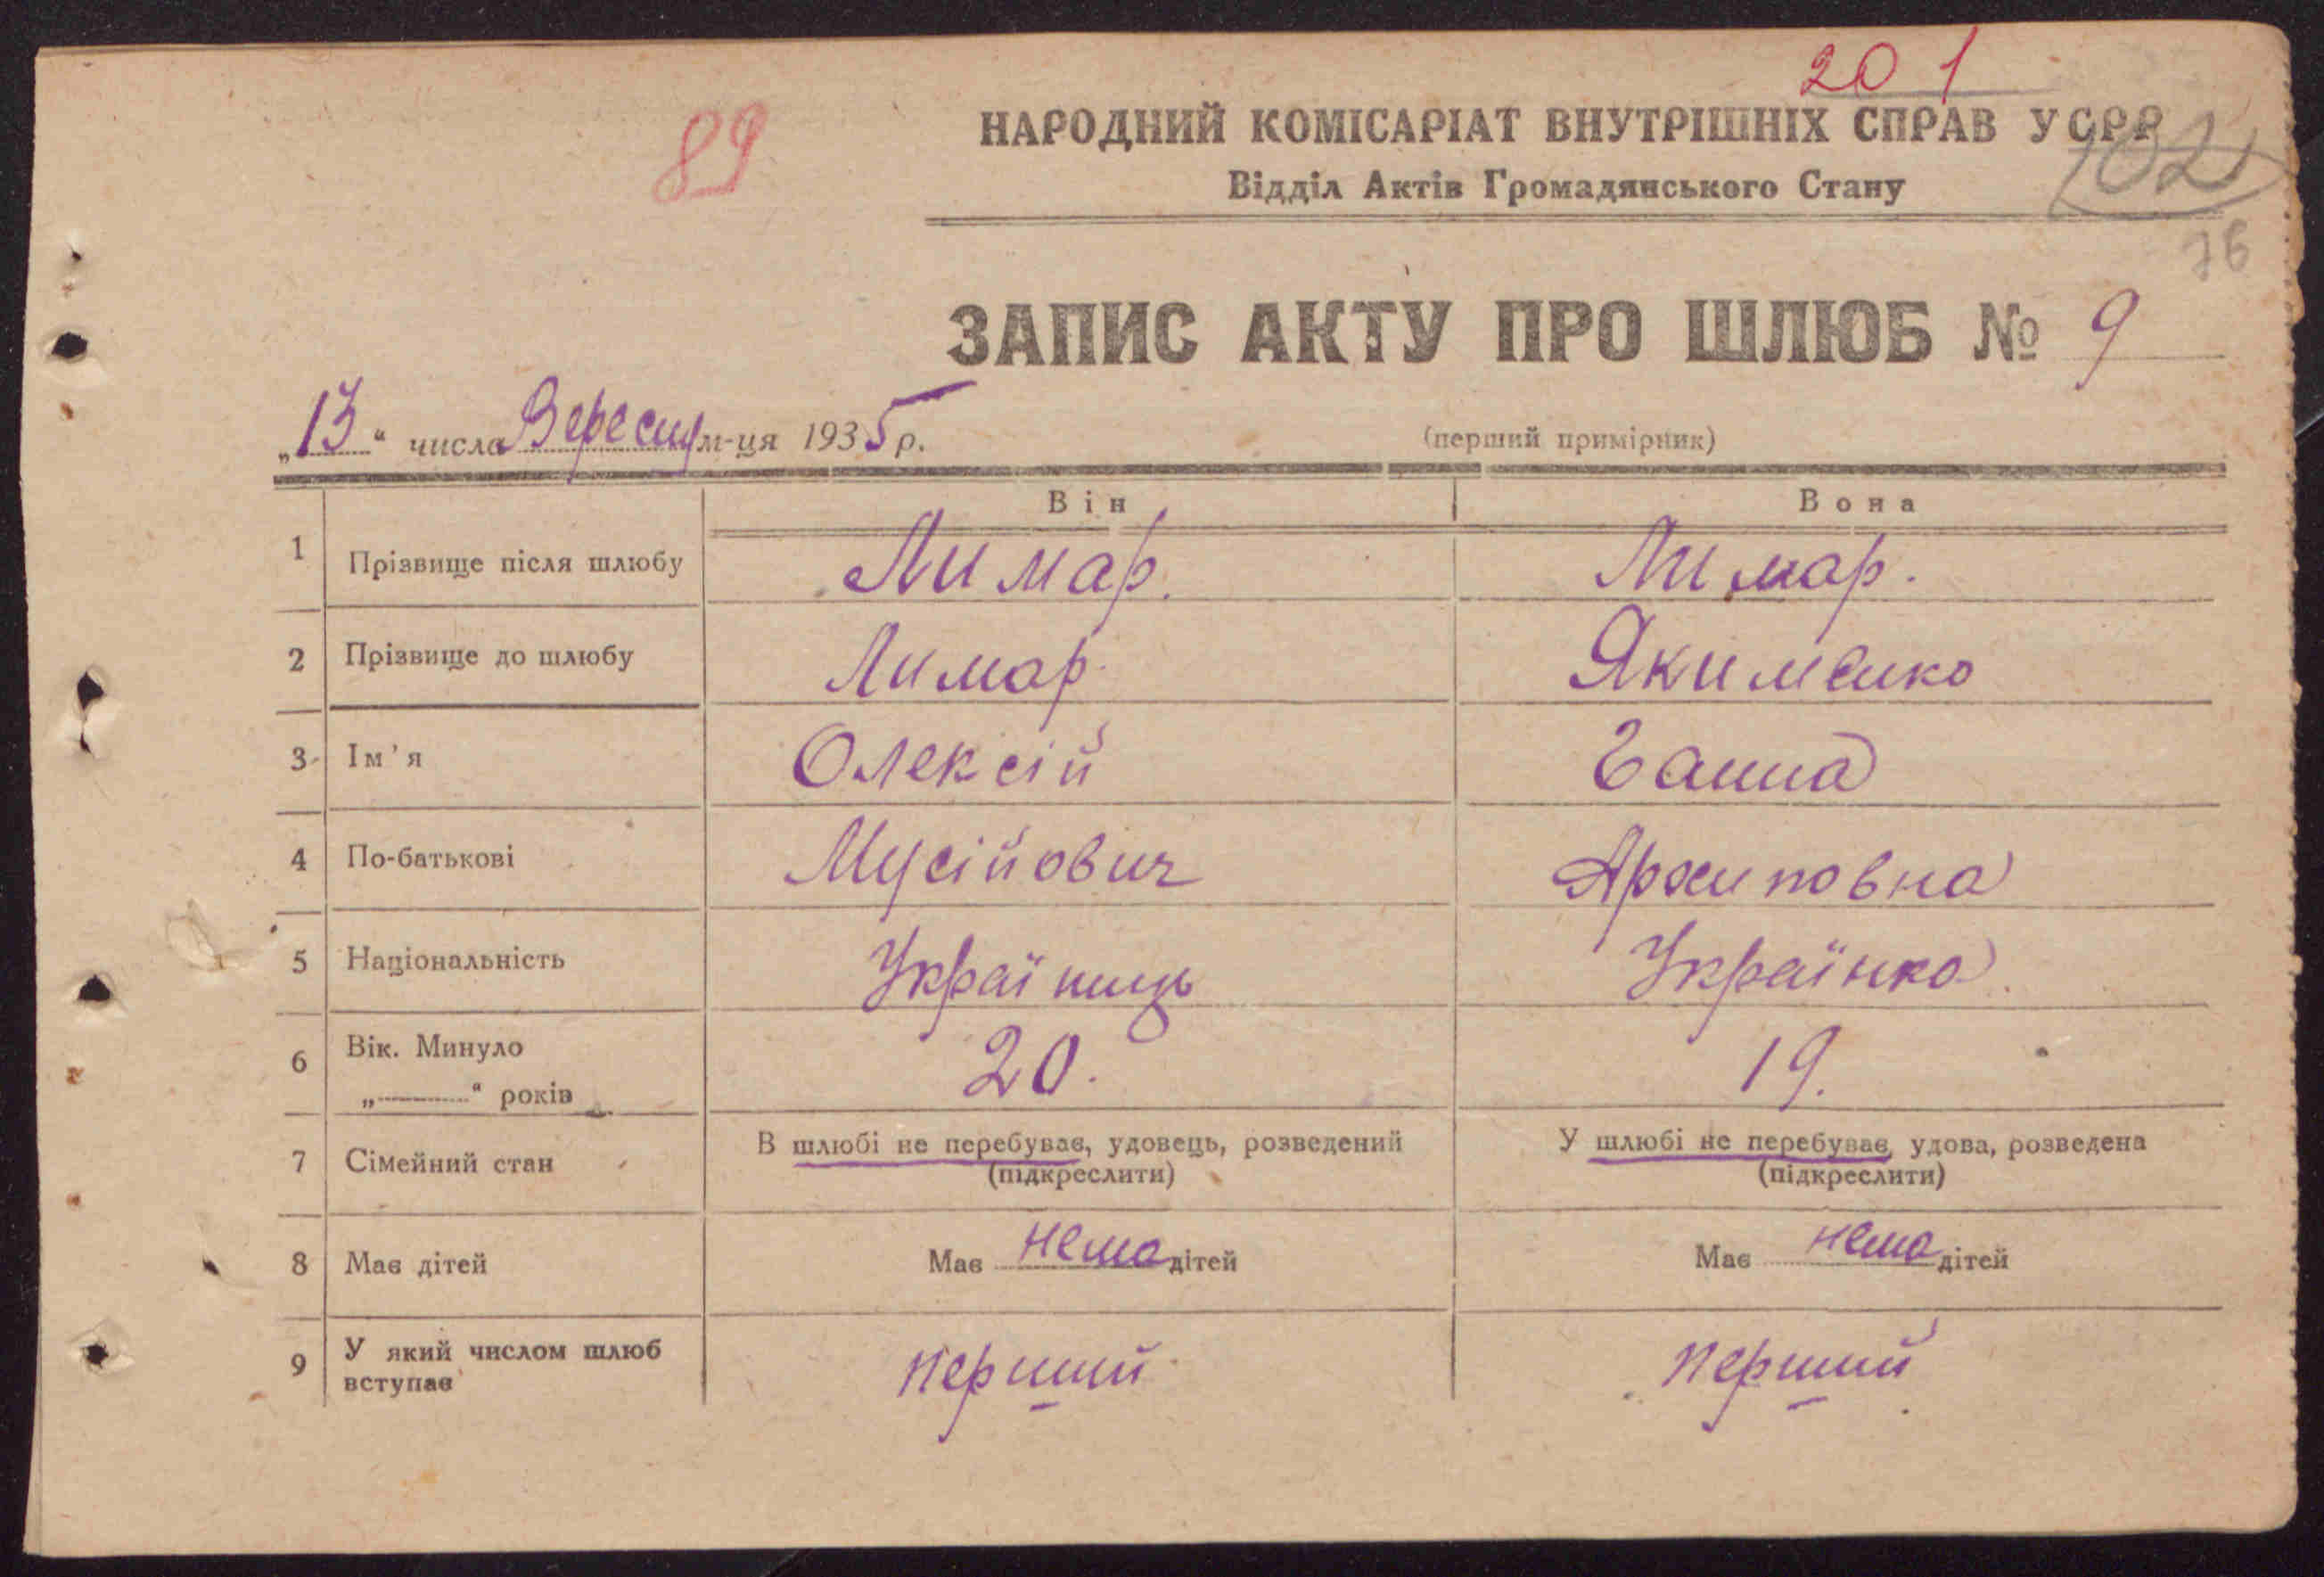 20 1
89
НАРОДНИЙ КОМІСАРІАТ ВНУТРІШНІХ СПРАВ УСРР
Відділ Актів Громадянського Стану
102
76
ЗАПИС АКТУ ПРО ШЛЮБ № 9
„13“ числа Вересня м-ця 1935 р.
(перший примірник)
Він Вона
1 Прізвище після шлюбу Лимар. Лимар.
2 Прізвище до шлюбу Лимар. Якименко
3 Ім'я Олексій Ганна
4 По-батькові Мусійович Архиповна
5 Національність Українць Українка.
6 Вік. Минуло 20. 19.
„ “ років
7 Сімейний стан В шлюбі не перебуває, удовець, розведений У шлюбі не перебуває, удова, розведена
(підкреслити) (підкреслити)
8 Має дітей Має нема дітей Має нема дітей
9 У який числом шлюб вступає перший перший